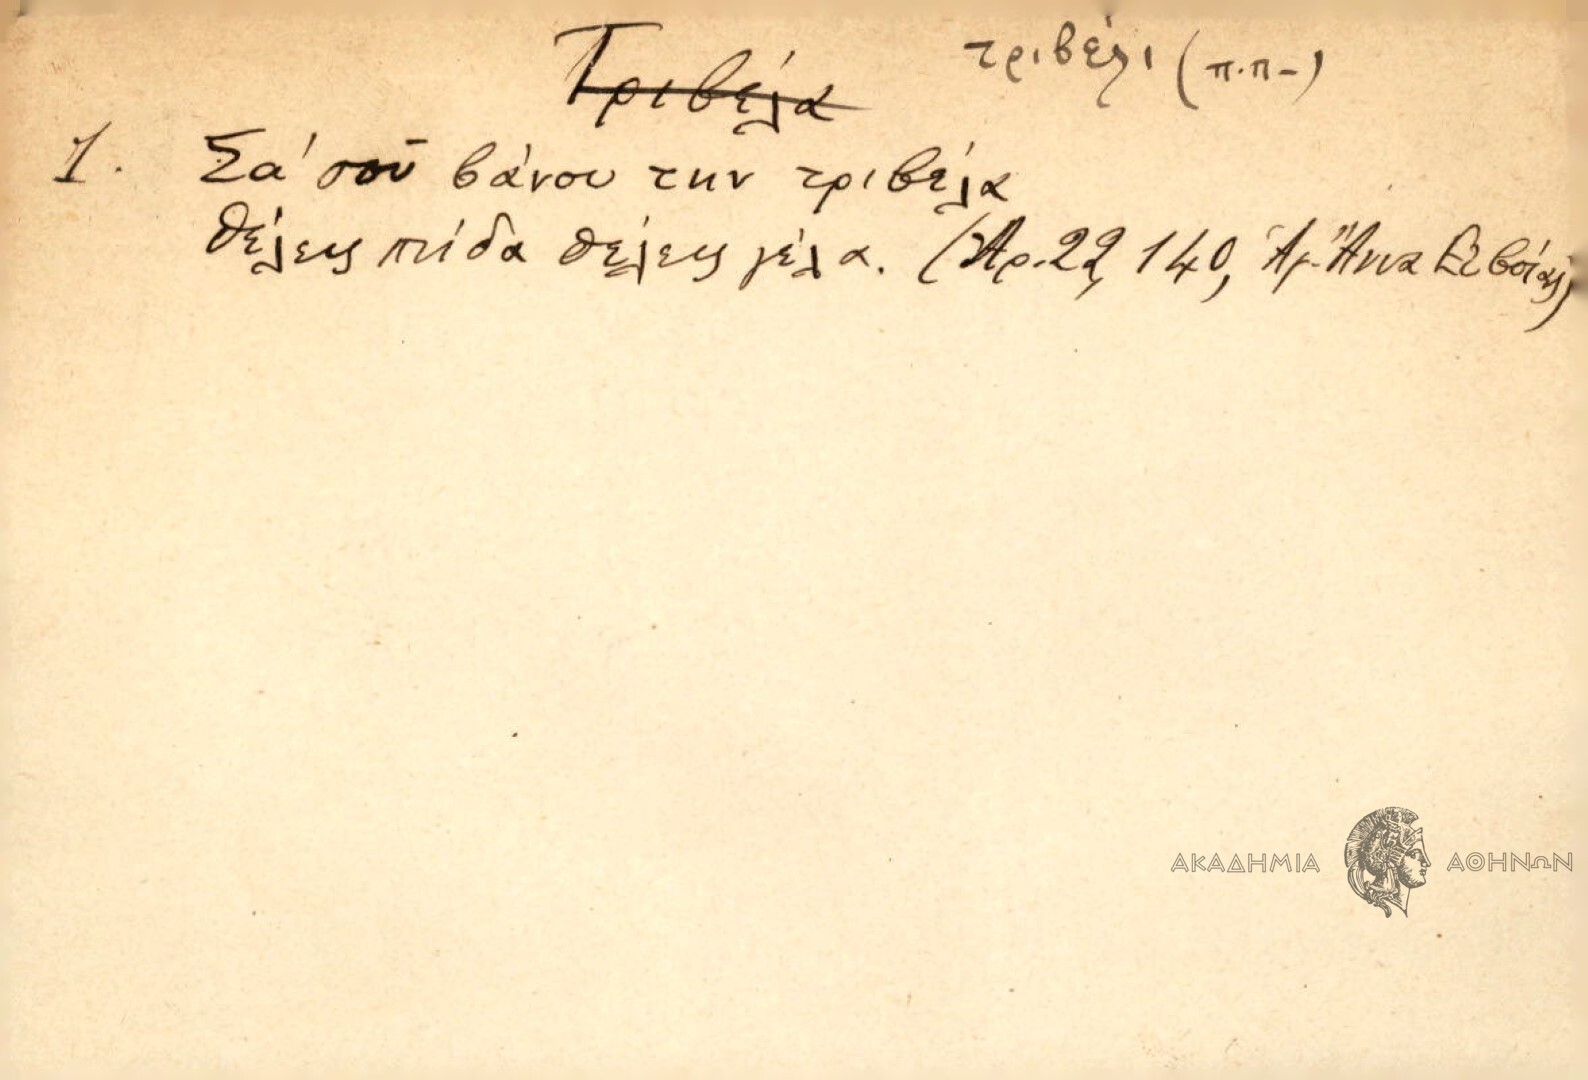 Τριβέλα τριβέλι (π.π-)
1. Σα' σοῦ βάνου την τριβέλα
θέλεις πήδα θέλεις γέλα. (Ἀρ. 22, 140, Ἁγ. Ἄννα Εὐβοίας)
ΑΚΑΔΗΜΙΑ ΑΘΗΝΩΝ